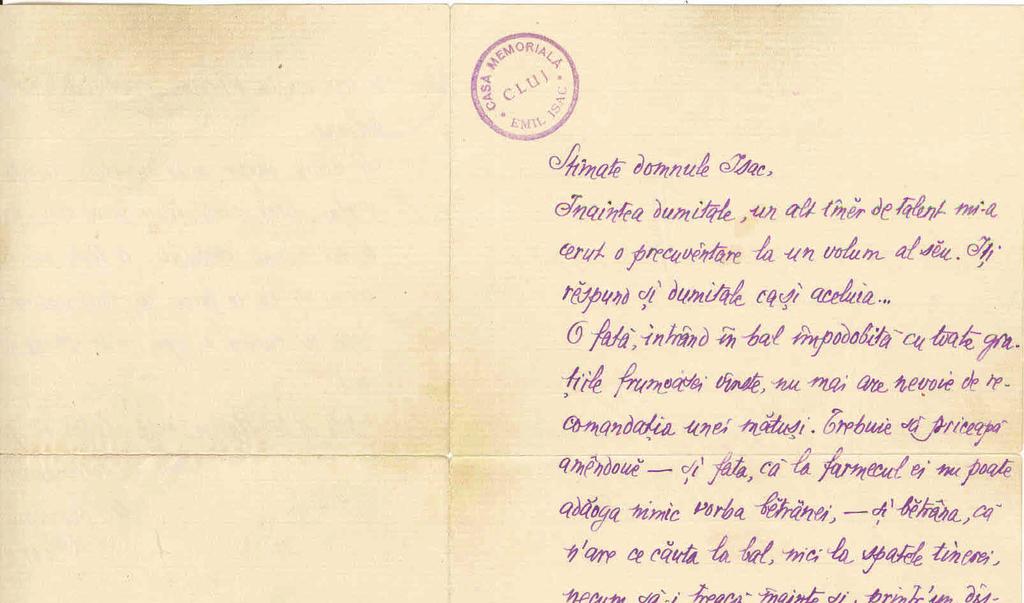 CASĂ MEMORIALĂ
CLUJ
* EMIL ISAC *
Stimate domnule Isac,
Înaintea dumitale, un alt tînĕr de talent mi-a
cerut o precuvêntare la un volum al sĕu. Iți
rĕspund și dumitale ca și aceluia...
O fată, intrând in bal împodobită cu toate gra-
țiile frumoasei vîrste, nu mai are nevoie de re-
comandația unei mătuși. Trebuie să priceapă
amêndouĕ — și fata, că la farmecul ei nu poate
adăoga nimic vorba bĕtrânei, — și bĕtrâna, că
n'are ce căuta la bal, nici la spatele tinerei,
necum să-i treacă înainte și, printr'un dis-